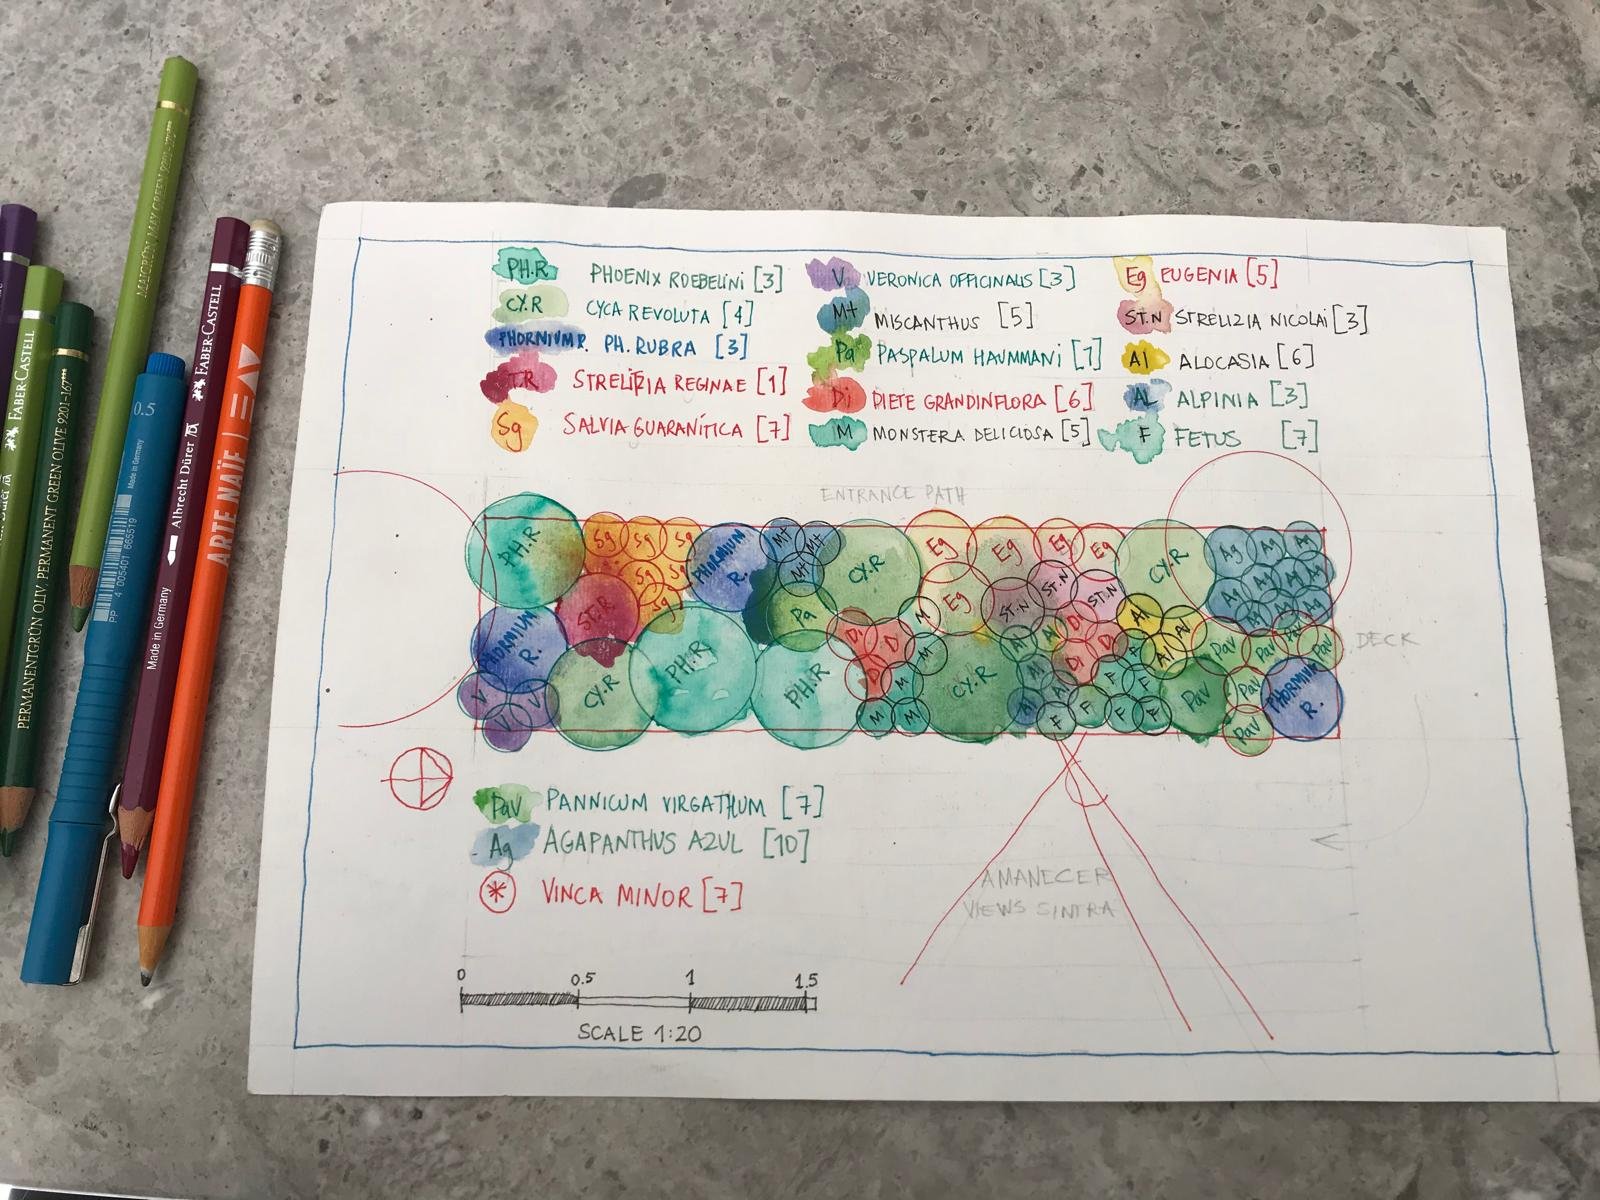 PH.R PHOENIX ROEBELINI [3]
CY.R CYCA REVOLUTA [4]
PHORNIUM R. PH. RUBRA [3]
ST.R STRELIZIA REGINAE [1]
Sg SALVIA GUARANÍTICA [7]
V VERONICA OFFICINALIS [3]
Mt MISCANTHUS [5]
Pa PASPALUM HAUMMANI [1]
Di DIETE GRANDINFLORA [6]
M MONSTERA DELICIOSA [5]
Eg EUGENIA [5]
ST.N STRELIZIA NICOLAI [3]
Al ALOCASIA [6]
AL ALPINIA [3]
F FETUS [7]
ENTRANCE PATH
PH.R Sg Sg Sg PHORMIUM R. Mt Mt CY.R Eg Eg Eg Eg CY.R Ag Ag Ag
Sg Sg Mt ST.N ST.N ST.N Ag Ag Ag
ST.R Sg Pa M Eg Di Al Al Ag Ag
PHORMIUM R. PH.R Di D M Al Al Di D F Al PaV PaV PaV PaV
DECK
V V CY.R PH.R Di M CY.R Al Al Di F F PaV PaV PHORMIUM R.
V V M M Al F F F F PaV
PaV PANNICUM VIRGATHUM [7]
Ag AGAPANTHUS AZUL [10]
* VINCA MINOR [7]
AMANECER
VIEWS SINTRA
0 0.5 1 1.5
SCALE 1:20
MAIGRÜN MAY GREEN 9201-170***
FABER-CASTELL
PERMANENTGRÜN OLIV, PERMANENT GREEN OLIVE 9201-167***
0.5
Made in Germany
PP 4 005401 665519
FABER-CASTELL
Albrecht Dürer
Made in Germany
ARTE NAÏF